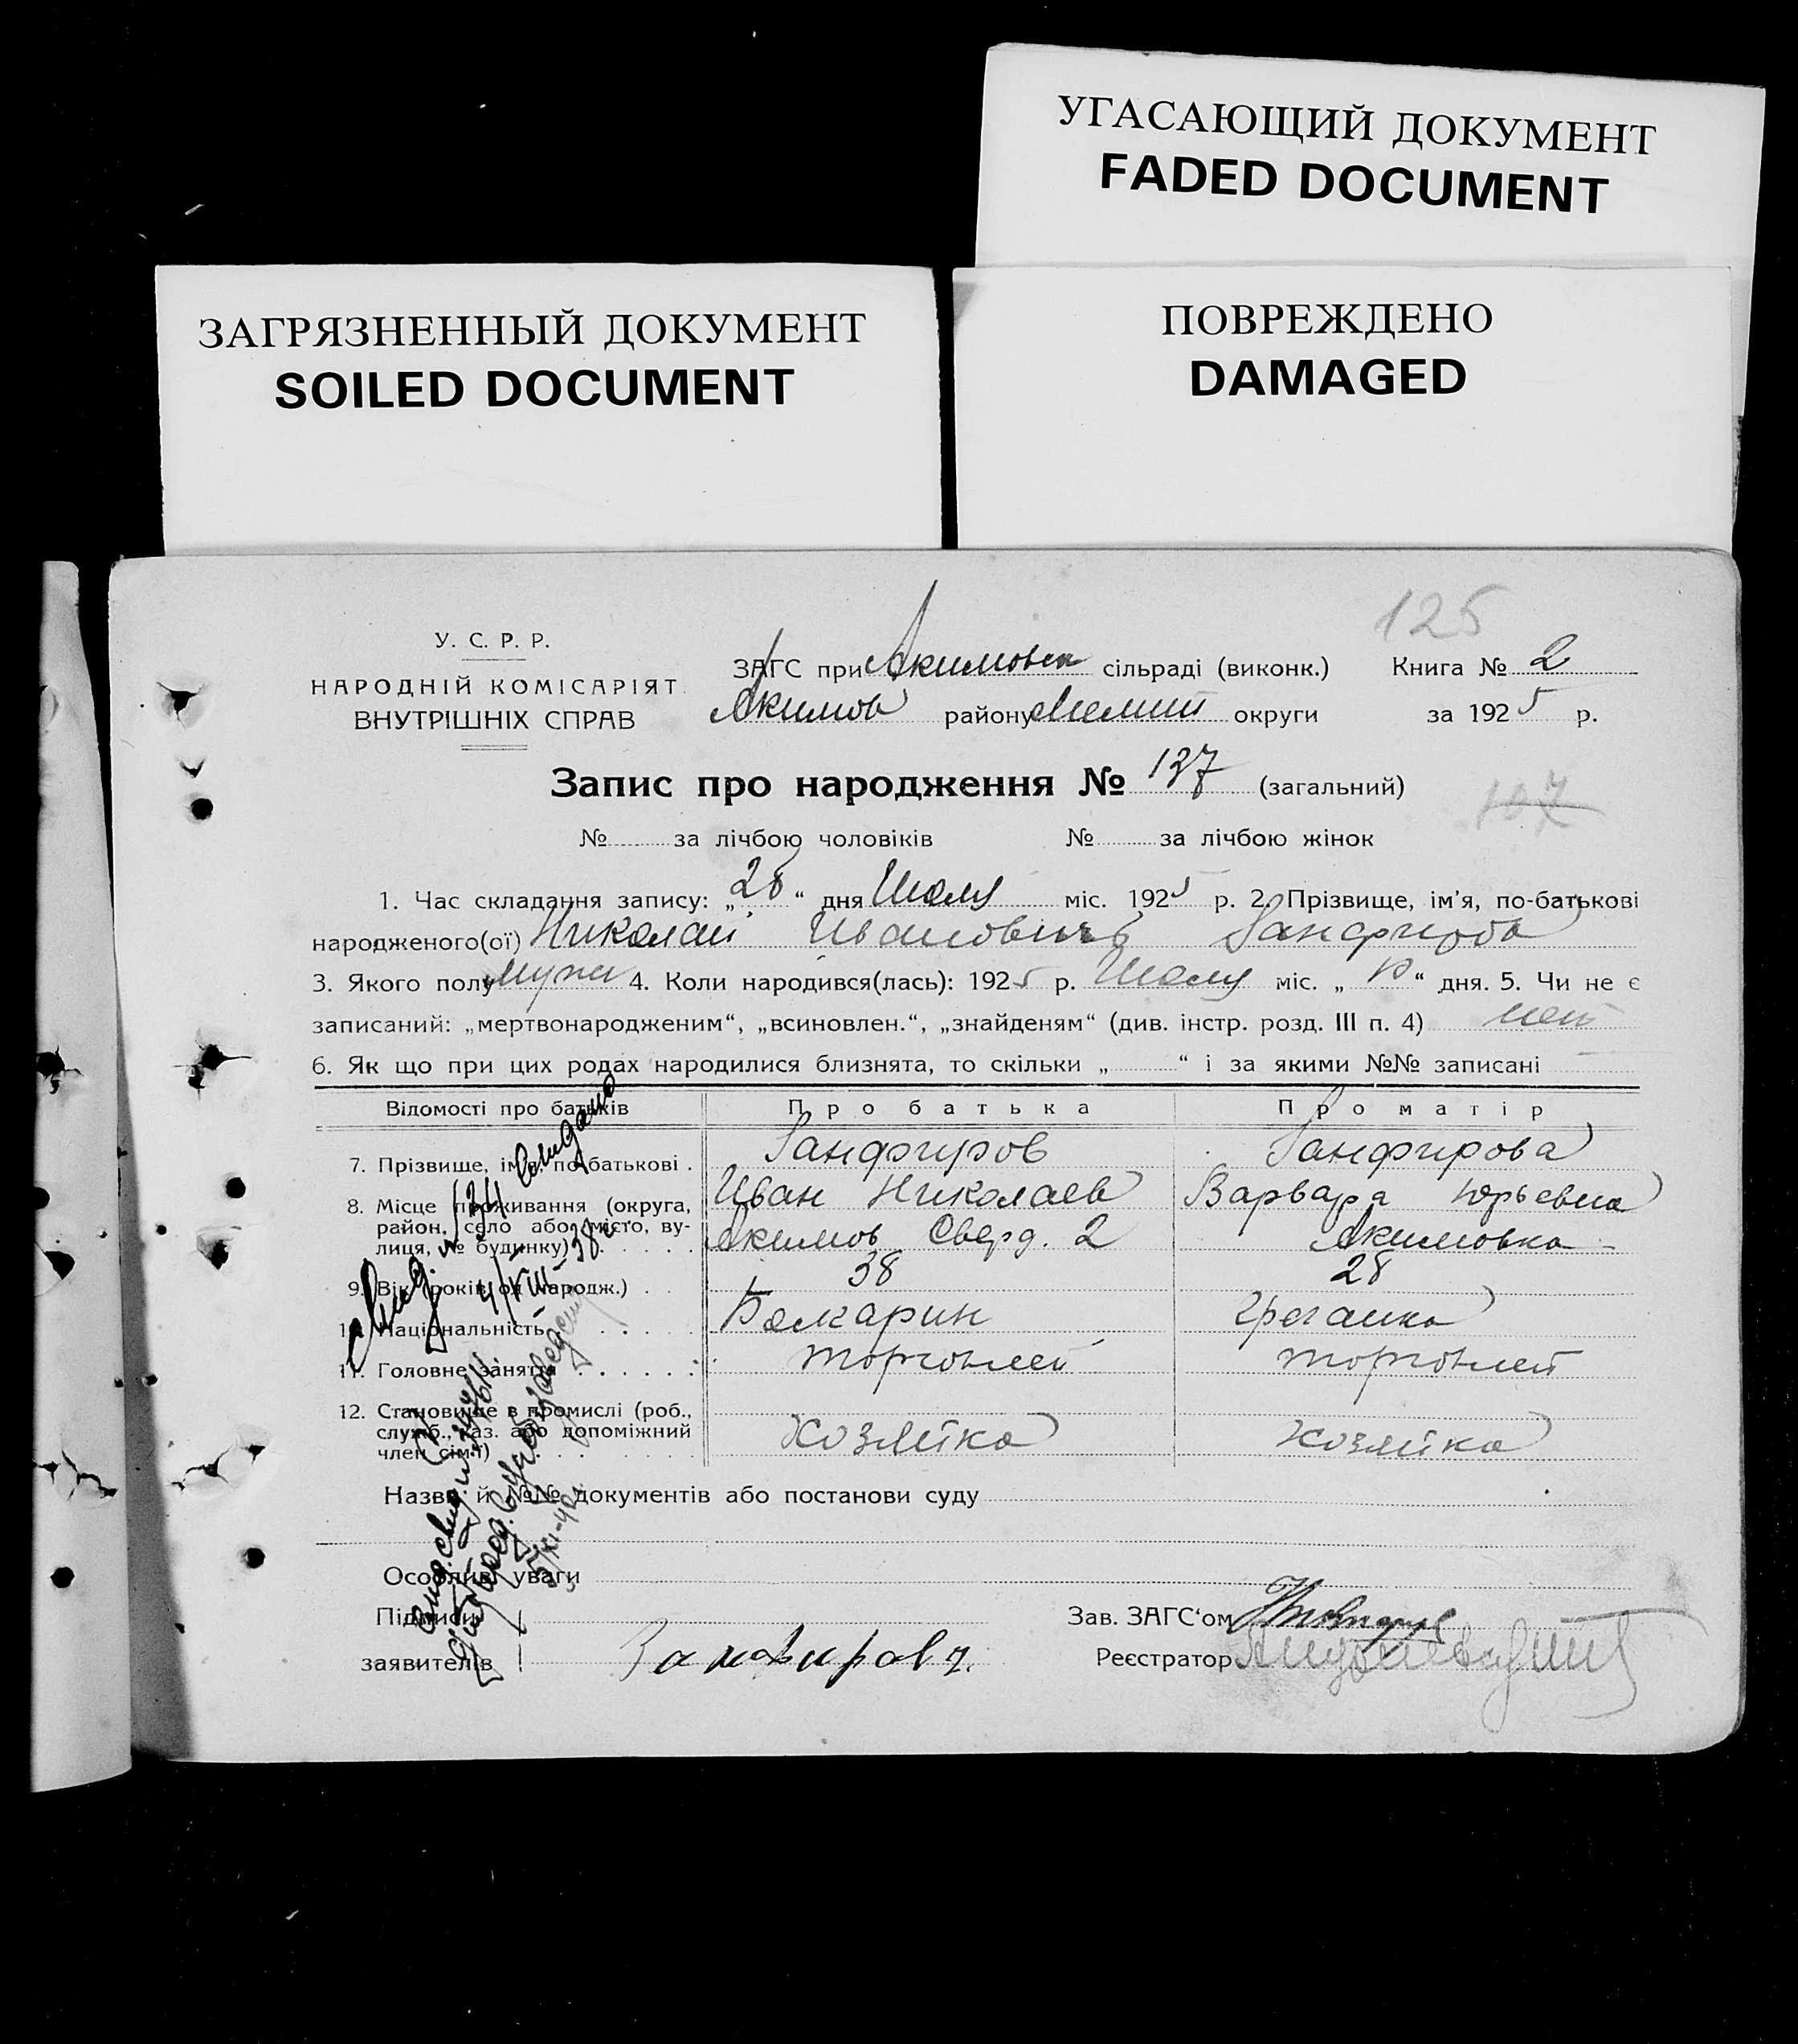 УГАСАЮЩИЙ ДОКУМЕНТ
FADED DOCUMENT
ЗАГРЯЗНЕННЫЙ ДОКУМЕНТ
SOILED DOCUMENT
ПОВРЕЖДЕНО
DAMAGED
125
У. С. Р. Р.
НАРОДНІЙ КОМІСАРІЯТ
ВНУТРІШНІХ СПРАВ
ЗАГС при Акимовск сільраді (виконк.) Книга № 2
Акимов району Мелит округи за 1925 р.
Запис про народження № 137 (загальний)
107
№ за лічбою чоловіків № за лічбою жінок
1. Час складання запису: „28“ дня Июля міс. 1925 р. 2. Прізвище, ім’я, по-батькові
народженого(ої) Николай Иванович Занфиров
3. Якого полу мужс 4. Коли народився(лась): 1925 р. Июля міс. „ “ дня. 5. Чи не є
записаний: „мертвонародженим“, „всиновлен.“, „знайденям“ (див. інстр. розд. III п. 4) нет
6. Як що при цих родах народилися близнята, то скільки „ “ і за якими №№ записані
Відомості про батьків Про батька Про матір
7. Прізвище, ім’я, по-батькові . Занфиров Занфирова
8. Місце проживання (округа, Иван Николаев Варвара Юрьевна
район, село або місто, ву-
лиця, № будинку) Акимов Сверд. 2 Акимовка
9. Вік (років од народж.) 38 28
10. Національність Болгарин гречанка
11. Головне заняття торговлей торговлей
12. Становище в промислі (роб.,
служб., хаз. або допоміжний
член сім’ї) Хозяйка хозяйка
Назва й №№ документів або постанови суду
Особливі уваги
Підписи Зав. ЗАГС‘ом
заявителів Занфиров Реєстратор